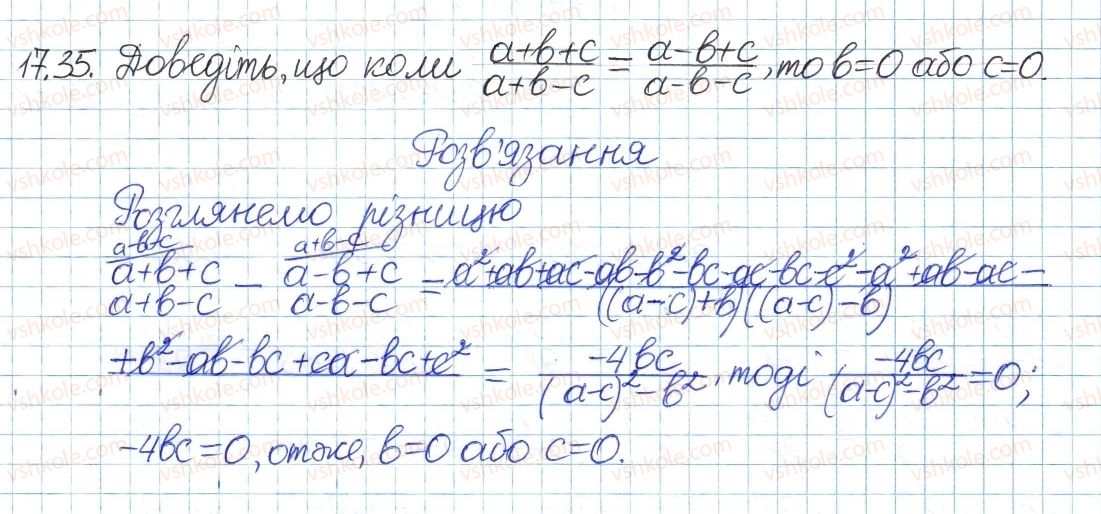 17.35. Доведіть, що коли (a+b+c)/(a+b-c) = (a-b+c)/(a-b-c), то b=0 або c=0.
Розв'язання
Розглянемо різницю
a-b+c a+b-c
(a+b+c)/(a+b-c) - (a-b+c)/(a-b-c) = (a²+ab+ac-ab-b²-bc-ac-bc-c²-a²+ab-ac-)/(((a-c)+b)((a-c)-b))
+b²-ab-bc+ca-bc+c² = (-4bc)/((a-c)²-b²), тоді (-4bc)/((a-c)²-b²) = 0;
-4bc=0, отже, b=0 або c=0.